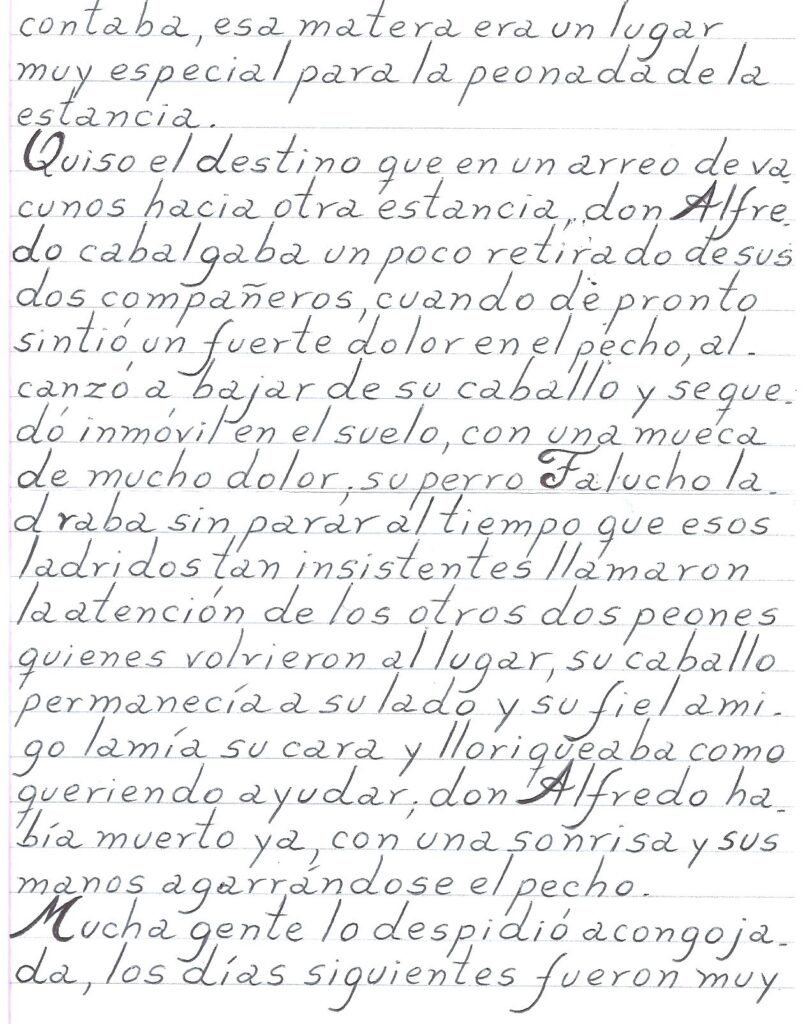 contaba, esa matera era un lugar
muy especial para la peonada de la
estancia.
Quiso el destino que en un arreo de va-
cunos hacia otra estancia, don Alfre-
do cabalgaba un poco retirado de sus
dos compañeros, cuando de pronto
sintió un fuerte dolor en el pecho, al-
canzó a bajar de su caballo y se que-
dó inmóvil en el suelo, con una mueca
de mucho dolor; su perro Falucho la-
draba sin parar al tiempo que esos
ladridos tan insistentes llamaron
la atención de los otros dos peones
quienes volvieron al lugar, su caballo
permanecía a su lado y su fiel ami-
go lamía su cara y lloriqueaba como
queriendo ayudar; don Alfredo ha-
bía muerto ya, con una sonrisa y sus
manos agarrándose el pecho.
Mucha gente lo despidió acongoja-
da, los días siguientes fueron muy